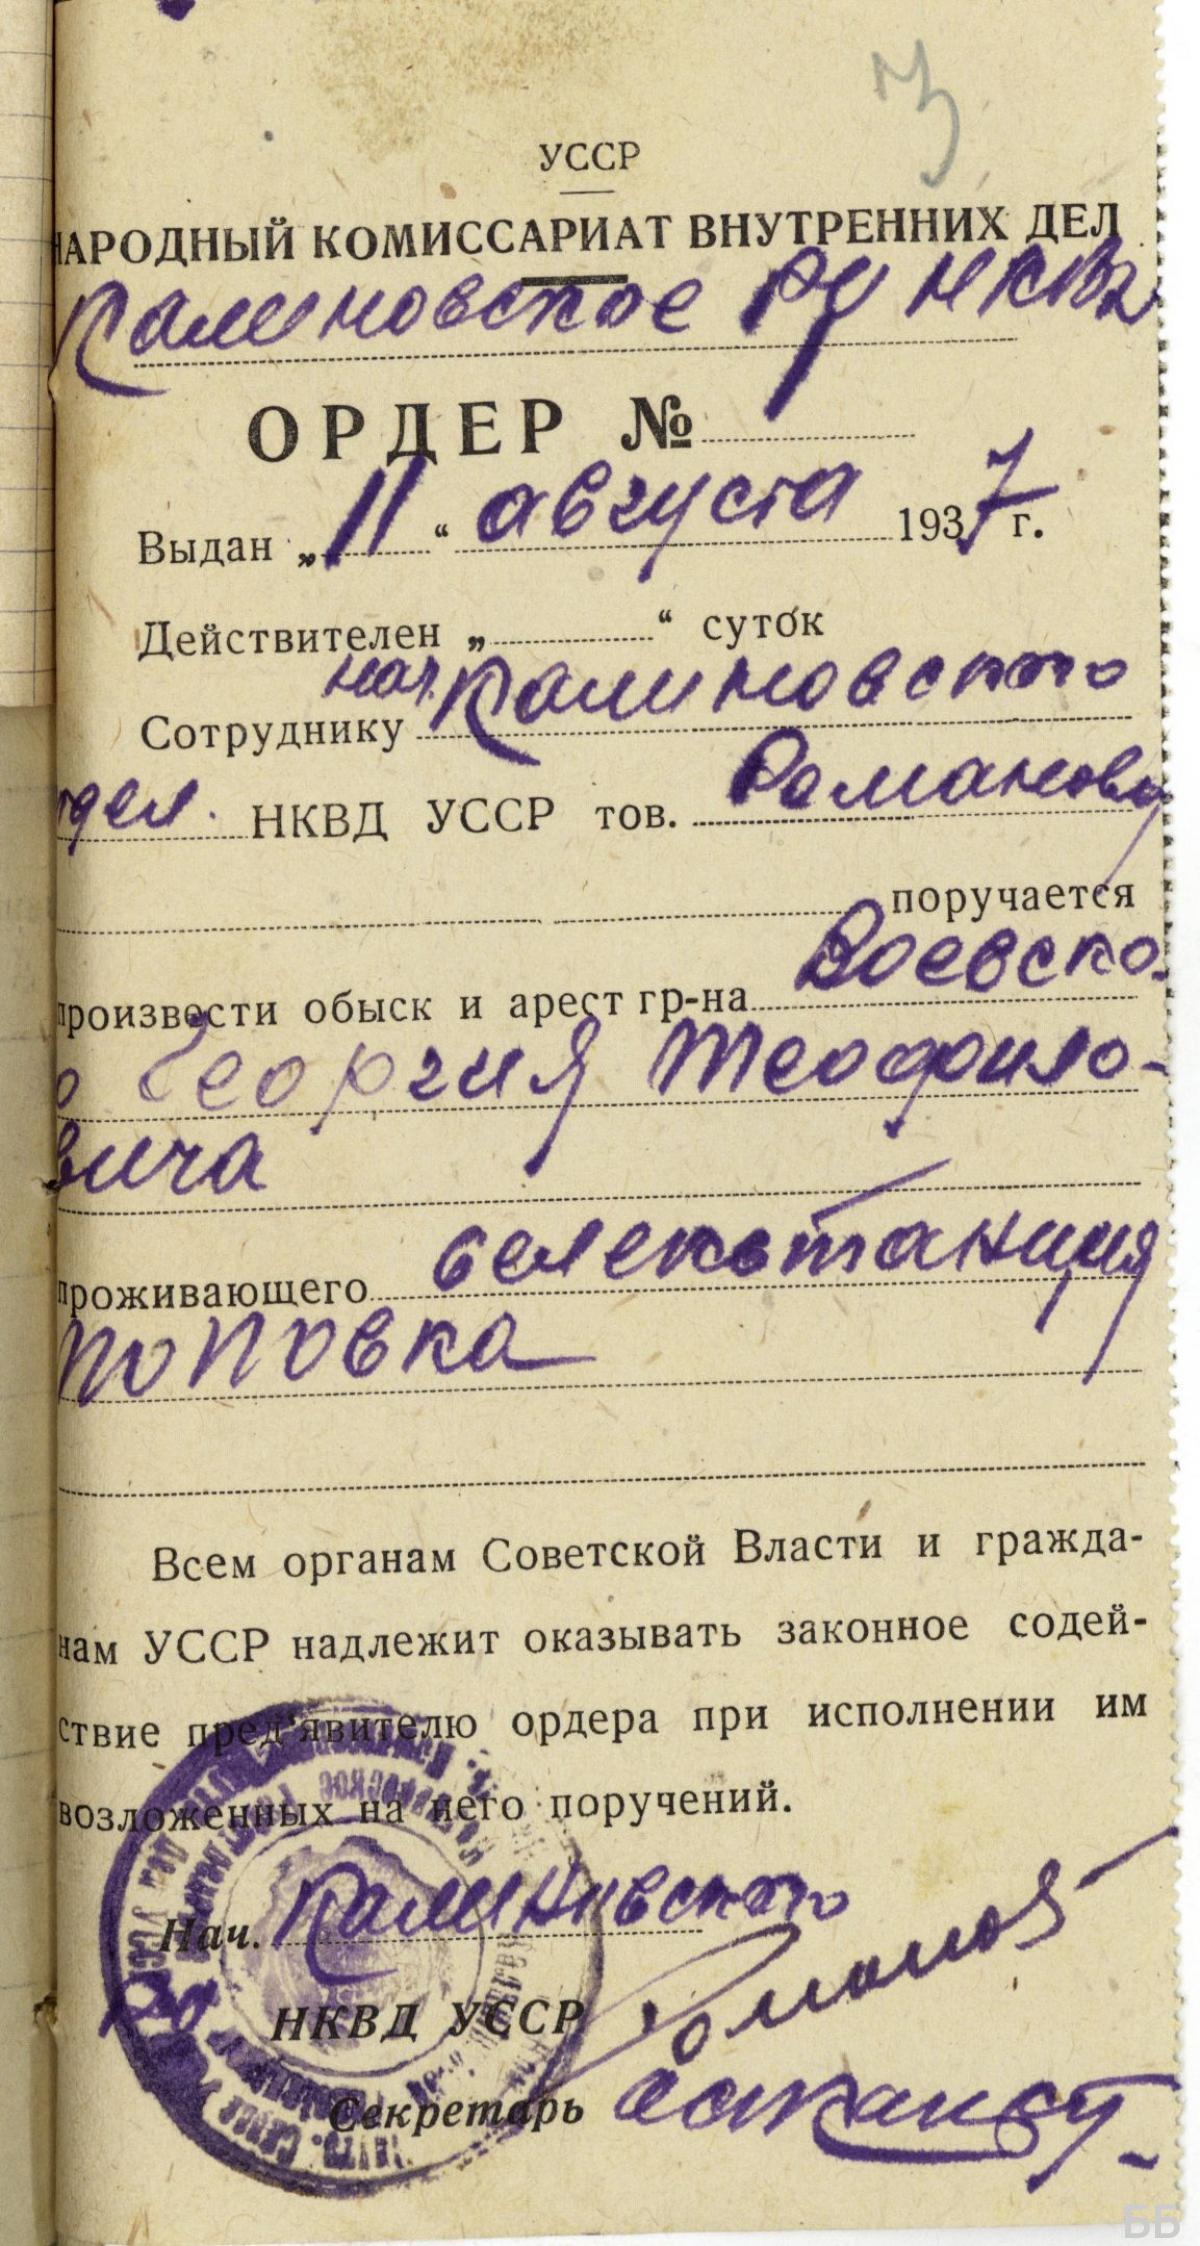 3
УССР
НАРОДНЫЙ КОМИССАРИАТ ВНУТРЕННИХ ДЕЛ
Калиновское РУ НКВД
ОРДЕР №
Выдан „11“ августа 1937 г.
Действителен „ “ суток
нач.
Сотруднику Калиновского
отдел. НКВД УССР тов. Романову
поручается
произвести обыск и арест гр-на Воевско-
го Георгия Теофило-
вича
проживающего селекстанция
Поповка
Всем органам Советской Власти и гражда-
нам УССР надлежит оказывать законное содей-
ствие пред'явителю ордера при исполнении им
возложенных на него поручений.
Нач. Калиновского
РО НКВД УССР Романов
Секретарь
ББ